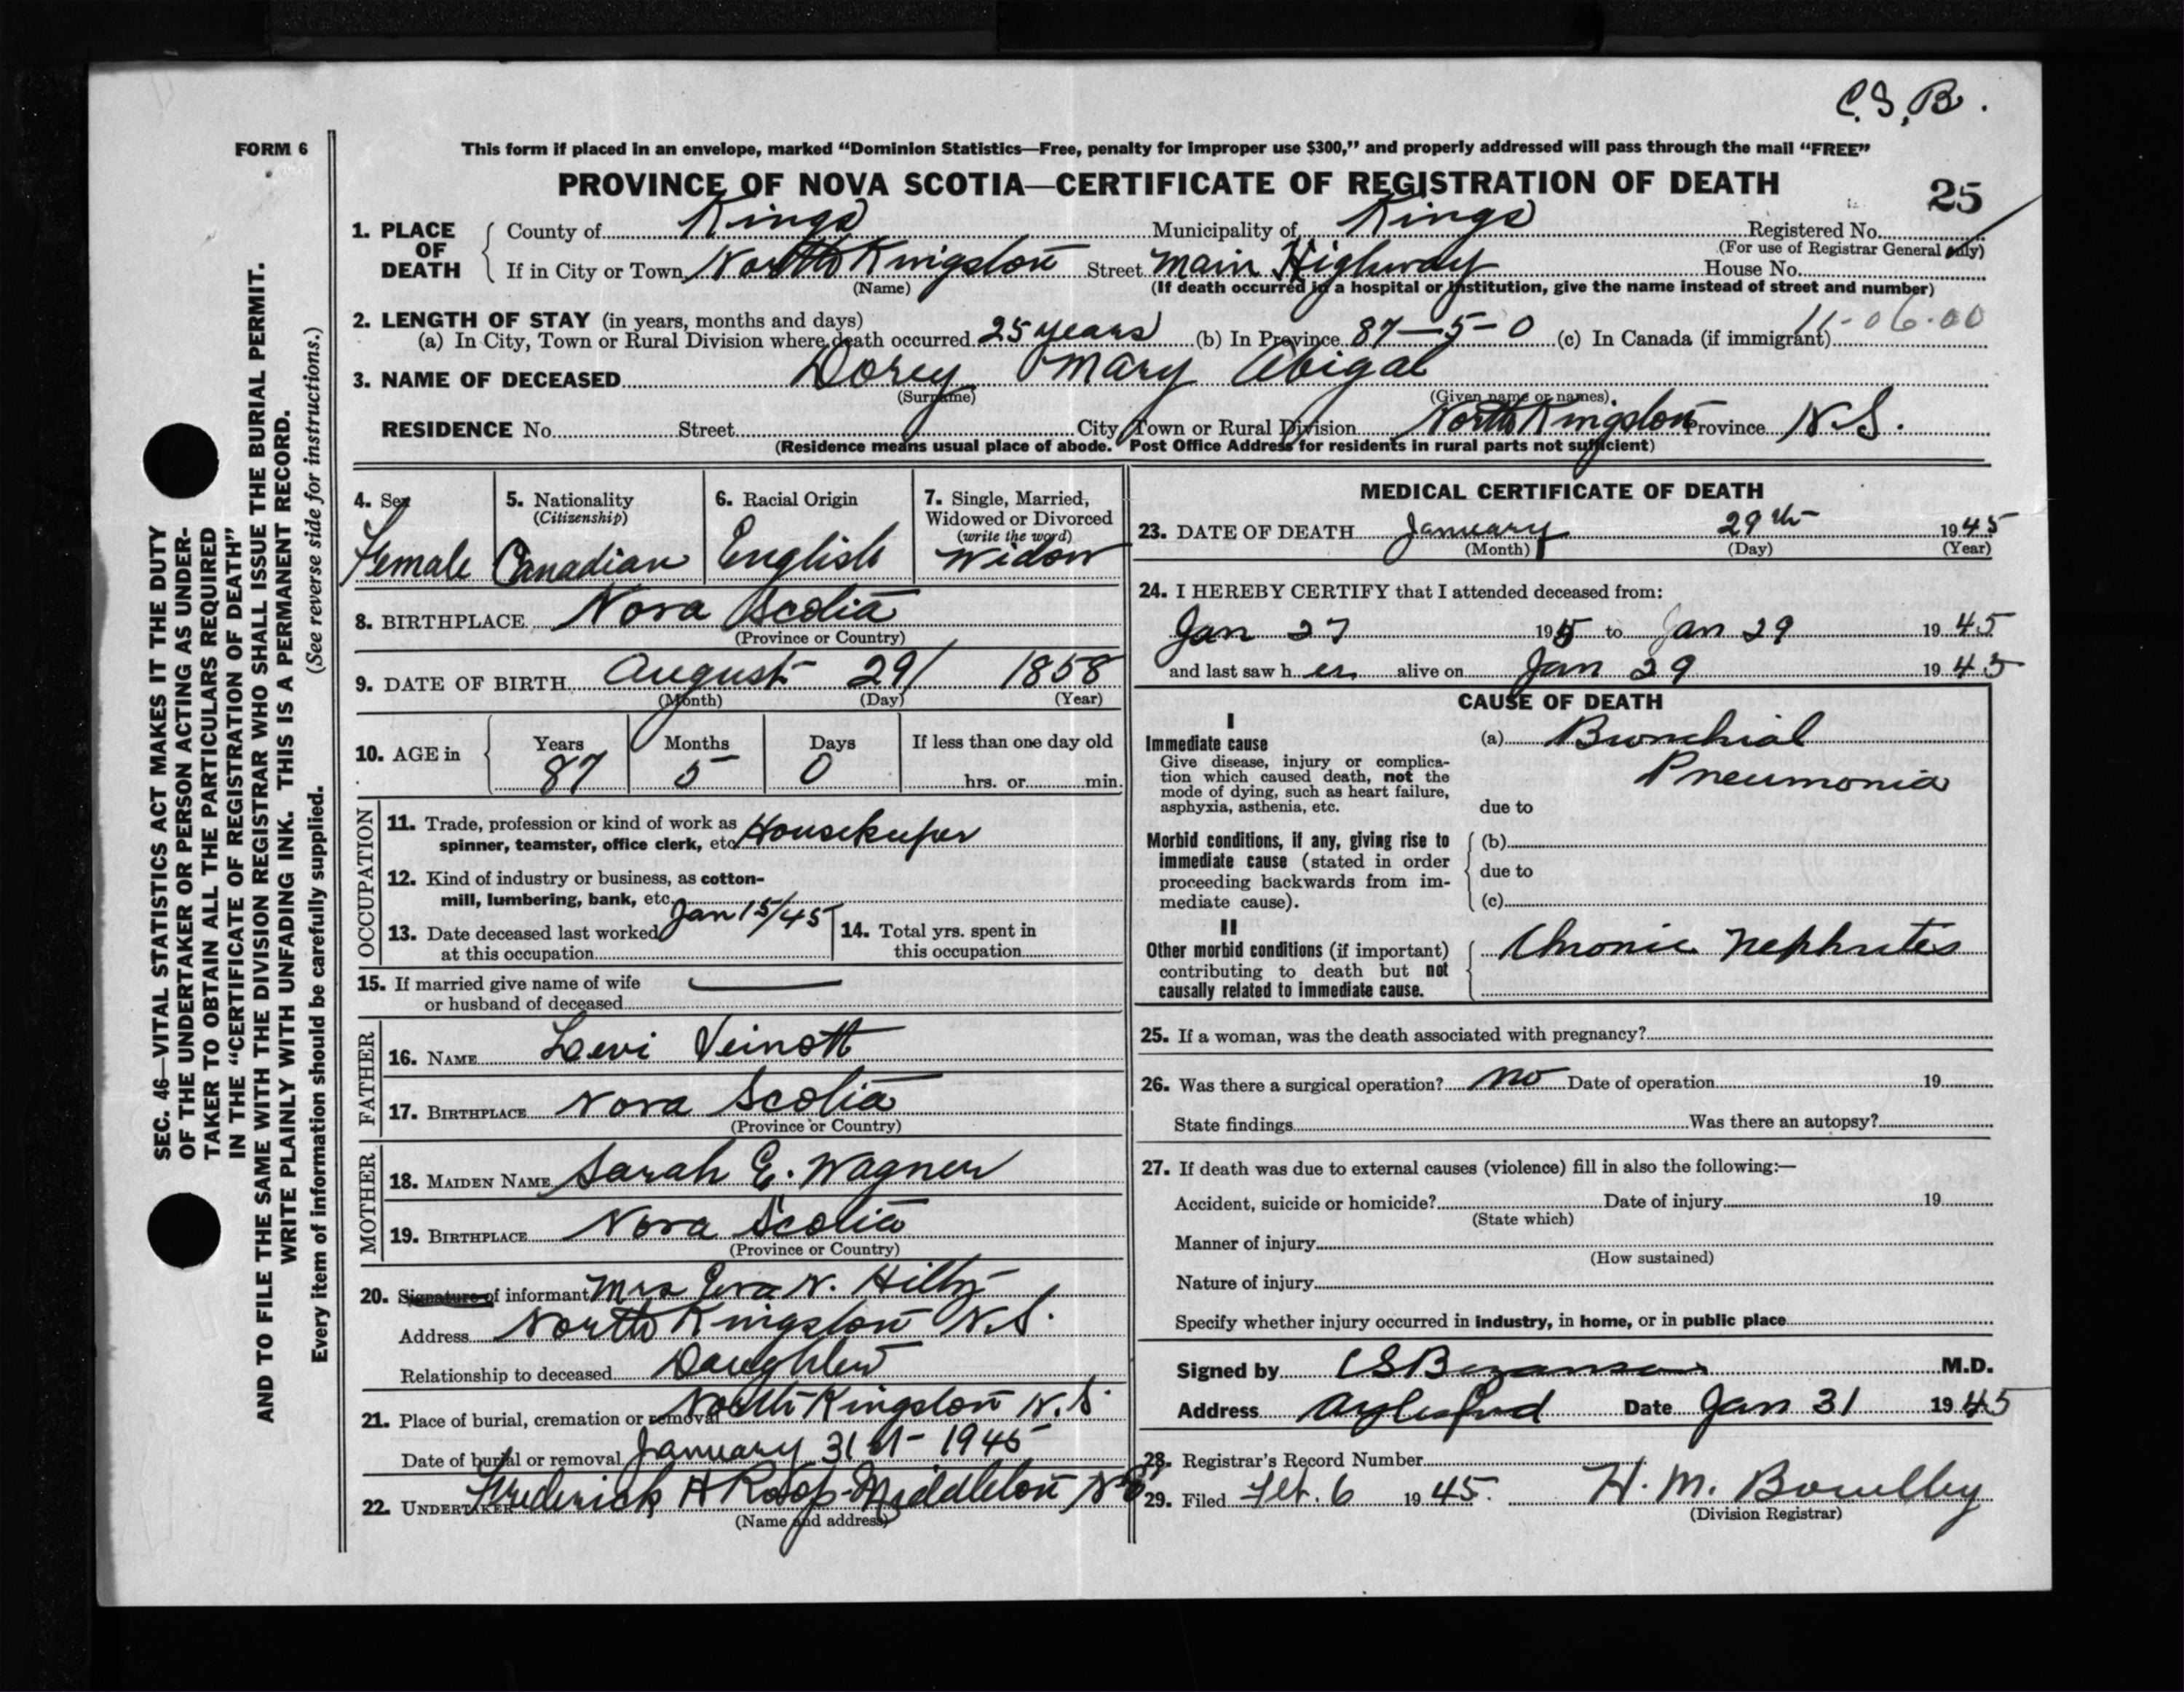 C. S. B.
FORM 6
This form if placed in an envelope, marked “Dominion Statistics—Free, penalty for improper use $300,” and properly addressed will pass through the mail “FREE”
PROVINCE OF NOVA SCOTIA—CERTIFICATE OF REGISTRATION OF DEATH
25
1. PLACE OF DEATH
County of Kings Municipality of Kings Registered No.
(For use of Registrar General only)
If in City or Town North Kingston Street Main Highway House No.
(Name) (If death occurred in a hospital or institution, give the name instead of street and number)
2. LENGTH OF STAY (in years, months and days) 11-06-00
(a) In City, Town or Rural Division where death occurred 25 years (b) In Province 87-5-0 (c) In Canada (if immigrant)
3. NAME OF DECEASED Dorey Mary Abigal
(Surname) (Given name or names)
RESIDENCE No. Street City, Town or Rural Division North Kingston Province N.S.
(Residence means usual place of abode. Post Office Address for residents in rural parts not sufficient)
4. Sex
Female
5. Nationality
(Citizenship)
Canadian
6. Racial Origin
English
7. Single, Married,
Widowed or Divorced
(write the word)
Widow
8. BIRTHPLACE Nova Scotia
(Province or Country)
9. DATE OF BIRTH August 29/ 1858
(Month) (Day) (Year)
10. AGE in
Years Months Days If less than one day old
87 5 0 hrs. or min.
OCCUPATION
11. Trade, profession or kind of work as
spinner, teamster, office clerk, etc. Housekeeper
12. Kind of industry or business, as cotton-
mill, lumbering, bank, etc.
13. Date deceased last worked Jan 15/45
at this occupation
14. Total yrs. spent in
this occupation
15. If married give name of wife —
or husband of deceased
FATHER
16. NAME Levi Veinott
17. BIRTHPLACE Nova Scotia
(Province or Country)
MOTHER
18. MAIDEN NAME Sarah E. Wagner
19. BIRTHPLACE Nova Scotia
(Province or Country)
20. Signature of informant Mrs Eva N.
Address North Kingston N.S.
Relationship to deceased Daughter
21. Place of burial, cremation or removal North Kingston N.S.
Date of burial or removal January 31st 1945
22. UNDERTAKER Frederick A Middleton N.S.
(Name and address)
MEDICAL CERTIFICATE OF DEATH
23. DATE OF DEATH January 29th 1945
(Month) (Day) (Year)
24. I HEREBY CERTIFY that I attended deceased from:
Jan 27 1945 to Jan 29 1945
and last saw her alive on Jan 29 1945
CAUSE OF DEATH
I
Immediate cause
Give disease, injury or complica-
tion which caused death, not the
mode of dying, such as heart failure,
asphyxia, asthenia, etc.
(a) Bronchial
Pneumonia
due to
Morbid conditions, if any, giving rise to
immediate cause (stated in order
proceeding backwards from im-
mediate cause).
(b)
due to
(c)
II
Other morbid conditions (if important)
contributing to death but not
causally related to immediate cause.
Chronic Nephrites
25. If a woman, was the death associated with pregnancy?
26. Was there a surgical operation? No Date of operation 19
State findings Was there an autopsy?
27. If death was due to external causes (violence) fill in also the following:—
Accident, suicide or homicide? Date of injury 19
(State which)
Manner of injury
(How sustained)
Nature of injury
Specify whether injury occurred in industry, in home, or in public place
Signed by C S Bezanson M.D.
Address Aylesford Date Jan 31 1945
28. Registrar's Record Number
29. Filed Feb. 6 1945. H. M.
(Division Registrar)
SEC. 46—VITAL STATISTICS ACT MAKES IT THE DUTY
OF THE UNDERTAKER OR PERSON ACTING AS UNDER-
TAKER TO OBTAIN ALL THE PARTICULARS REQUIRED
IN THE “CERTIFICATE OF REGISTRATION OF DEATH”
AND TO FILE THE SAME WITH THE DIVISION REGISTRAR WHO SHALL ISSUE THE BURIAL PERMIT.
WRITE PLAINLY WITH UNFADING INK. THIS IS A PERMANENT RECORD.
Every item of information should be carefully supplied. (See reverse side for instructions.)